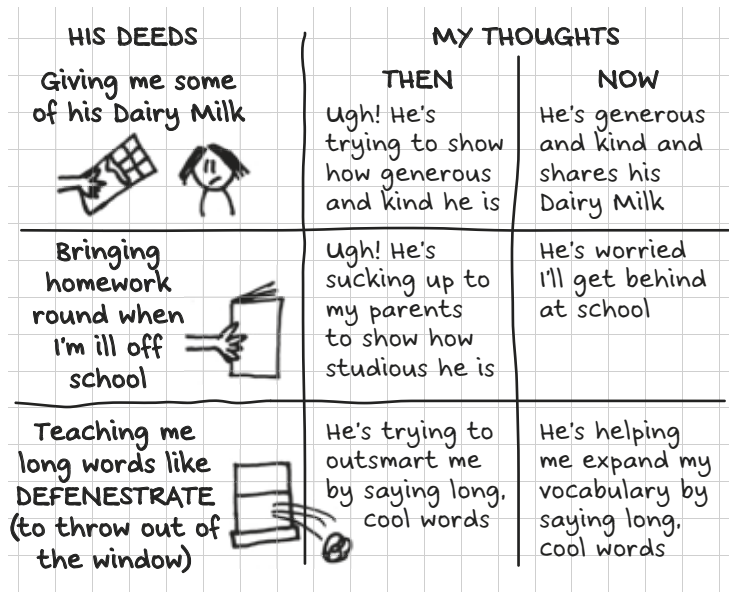 HIS DEEDS
MY THOUGHTS
THEN
NOW
Giving me some
of his Dairy Milk
Ugh! He's
trying to show
how generous
and kind he is
He's generous
and kind and
shares his
Dairy Milk
Bringing
homework
round when
I'm ill off
school
Ugh! He's
sucking up to
my parents
to show how
studious he is
He's worried
I'll get behind
at school
Teaching me
long words like
DEFENESTRATE
(to throw out of
the window)
He's trying to
outsmart me
by saying long,
cool words
He's helping
me expand my
vocabulary by
saying long,
cool words